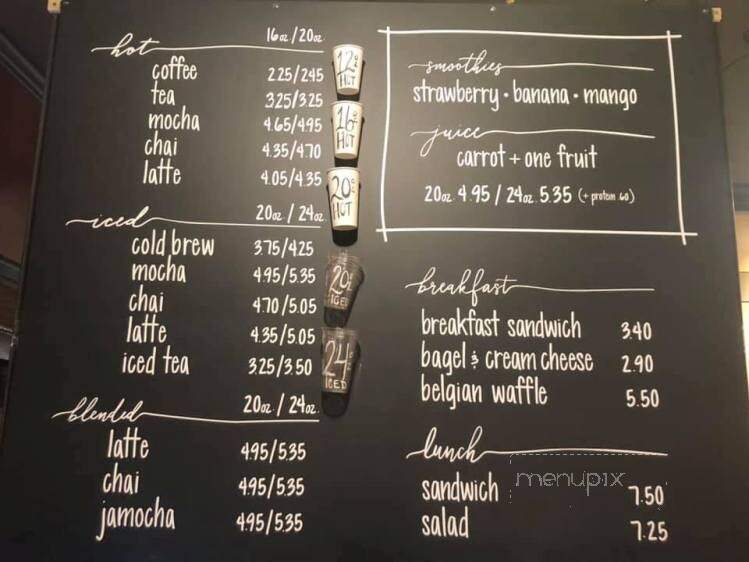 hot 16oz/20oz
coffee 2.25/2.45
tea 3.25/3.25
mocha 4.65/4.95
chai 4.35/4.70
latte 4.05/4.35
12oz HOT
16oz HOT
20oz HOT
iced 20oz/24oz
cold brew 3.75/4.25
mocha 4.95/5.35
chai 4.70/5.05
latte 4.35/5.05
iced tea 3.25/3.50
20oz ICED
24oz ICED
blended 20oz/24oz
latte 4.95/5.35
chai 4.95/5.35
jamocha 4.95/5.35
smoothies
strawberry • banana • mango
juice
carrot + one fruit
20oz 4.95 / 24oz 5.35 (+ protein .60)
breakfast
breakfast sandwich 3.40
bagel & cream cheese 2.90
belgian waffle 5.50
lunch
menupix
sandwich 7.50
salad 7.25